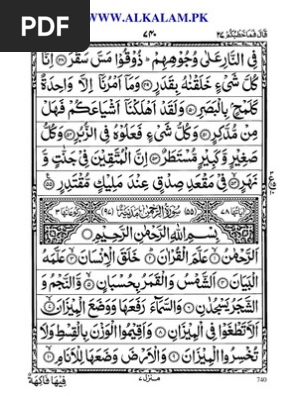 www.ALKALAM.PK
PDF
قَالَ فَمَا خَطْبُكُمْ ٢٧
٧٤٠
فِي النَّارِ عَلٰى وُجُوْهِهِمْ ؕ ذُوْقُوْا مَسَّ سَقَرَ ﴿٤٨﴾ اِنَّا
كُلَّ شَيْءٍ خَلَقْنٰهُ بِقَدَرٍ ﴿٤٩﴾ وَمَاۤ اَمْرُنَاۤ اِلَّا وَاحِدَةٌ
كَلَمْحٍۭ بِالْبَصَرِ ﴿٥٠﴾ وَلَقَدْ اَهْلَكْنَاۤ اَشْيَاعَكُمْ فَهَلْ
مِنْ مُّدَّكِرٍ ﴿٥١﴾ وَكُلُّ شَيْءٍ فَعَلُوْهُ فِي الزُّبُرِ ﴿٥٢﴾ وَكُلُّ
صَغِيْرٍ وَّكَبِيْرٍ مُّسْتَطَرٌ ﴿٥٣﴾ اِنَّ الْمُتَّقِيْنَ فِيْ جَنّٰتٍ وَّ
نَهَرٍ ﴿٥٤﴾ فِيْ مَقْعَدِ صِدْقٍ عِنْدَ مَلِيْكٍ مُّقْتَدِرٍ ﴿٥٥﴾
اٰيَاتُهَا ٧٨ (٥٥) سُوْرَةُ الرَّحْمٰنِ مَدَنِيَّةٌ (٩٧) رُكُوْعَاتُهَا ٣
بِسْمِ اللّٰهِ الرَّحْمٰنِ الرَّحِيْمِ
اَلرَّحْمٰنُ ﴿١﴾ عَلَّمَ الْقُرْاٰنَ ﴿٢﴾ خَلَقَ الْاِنْسَانَ ﴿٣﴾ عَلَّمَهُ
الْبَيَانَ ﴿٤﴾ اَلشَّمْسُ وَالْقَمَرُ بِحُسْبَانٍ ﴿٥﴾ وَّالنَّجْمُ وَ
الشَّجَرُ يَسْجُدٰنِ ﴿٦﴾ وَالسَّمَآءَ رَفَعَهَا وَوَضَعَ الْمِيْزَانَ ﴿٧﴾
اَلَّا تَطْغَوْا فِي الْمِيْزَانِ ﴿٨﴾ وَاَقِيْمُوا الْوَزْنَ بِالْقِسْطِ وَلَا
تُخْسِرُوا الْمِيْزَانَ ﴿٩﴾ وَالْاَرْضَ وَضَعَهَا لِلْاَنَامِ ﴿١٠﴾
فِيْهَا فَاكِهَةٌ
منزل ٧
740